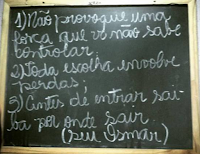 1) Não provoque uma
força que vc não sabe
controlar.
2) Toda escolha envolve
perdas;
3) Antes de entrar sai-
ba por onde sair
(Seu Osmar)